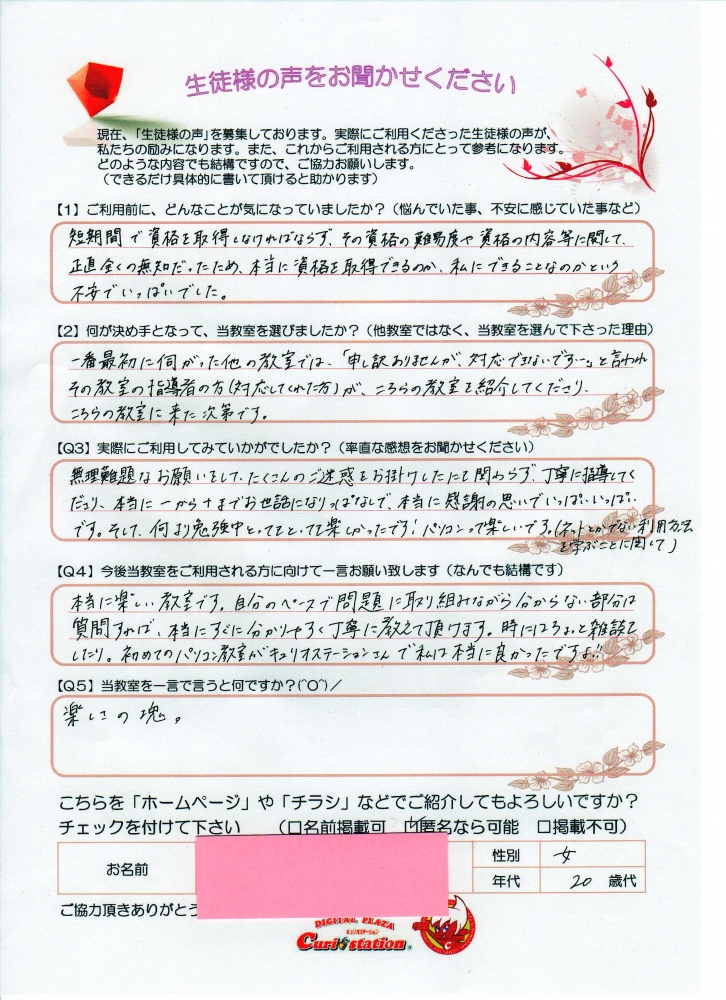 生徒様の声をお聞かせください
現在、「生徒様の声」を募集しております。実際にご利用くださった生徒様の声が、
私たちの励みになります。また、これからご利用される方にとって参考になります。
どのような内容でも結構ですので、ご協力お願いします。
（できるだけ具体的に書いて頂けると助かります）
【1】ご利用前に、どんなことが気になっていましたか？（悩んでいた事、不安に感じていた事など）
短期間で資格を取得しなければならず、その資格の難易度や資格の内容等に関して、
正直全くの無知だったため、本当に資格を取得できるのか、私にできることなのかという
不安でいっぱいでした。
【2】何が決め手となって、当教室を選びましたか？（他教室ではなく、当教室を選んで下さった理由）
一番最初に伺がった他の教室では、「申し訳ありませんが、対応できないです…。」と言われ
その教室の指導者の方(対応してくれた方)が、こちらの教室を紹介してくださり、
こちらの教室に来た次第です。
【Q3】実際にご利用してみていかがでしたか？（率直な感想をお聞かせください）
無理難題なお願いをして、たくさんのご迷惑をお掛けしたにも関わらず、丁寧に指導してく
ださり、本当に一から十までお世話になりっぱなしで、本当に感謝の思いでいっぱいいっぱい
です。そして、何より勉強中とってもとっても楽しかったです！パソコンって楽しいです。(ネットとかでない利用方法
を学ぶことに関して)
【Q4】今後当教室をご利用される方に向けて一言お願い致します（なんでも結構です）
本当に楽しい教室です。自分のペースで問題に取り組みながら分からない部分は
質問すれば、本当にすぐに分かりやすく丁寧に教えて頂けます。時にはちょっと雑談を
したり。初めてのパソコン教室がキュリオステーションさんで私は本当に良かったですよ!!
【Q5】当教室を一言で言うと何ですか？(^O^)／
楽しさの塊。
こちらを「ホームページ」や「チラシ」などでご紹介してもよろしいですか？
チェックを付けて下さい　（□名前掲載可　☑匿名なら可能　□掲載不可）
お名前
性別　女
年代　20　歳代
ご協力頂きありがとう
DIGITAL PLAZA
キュリオステーション
Curio station